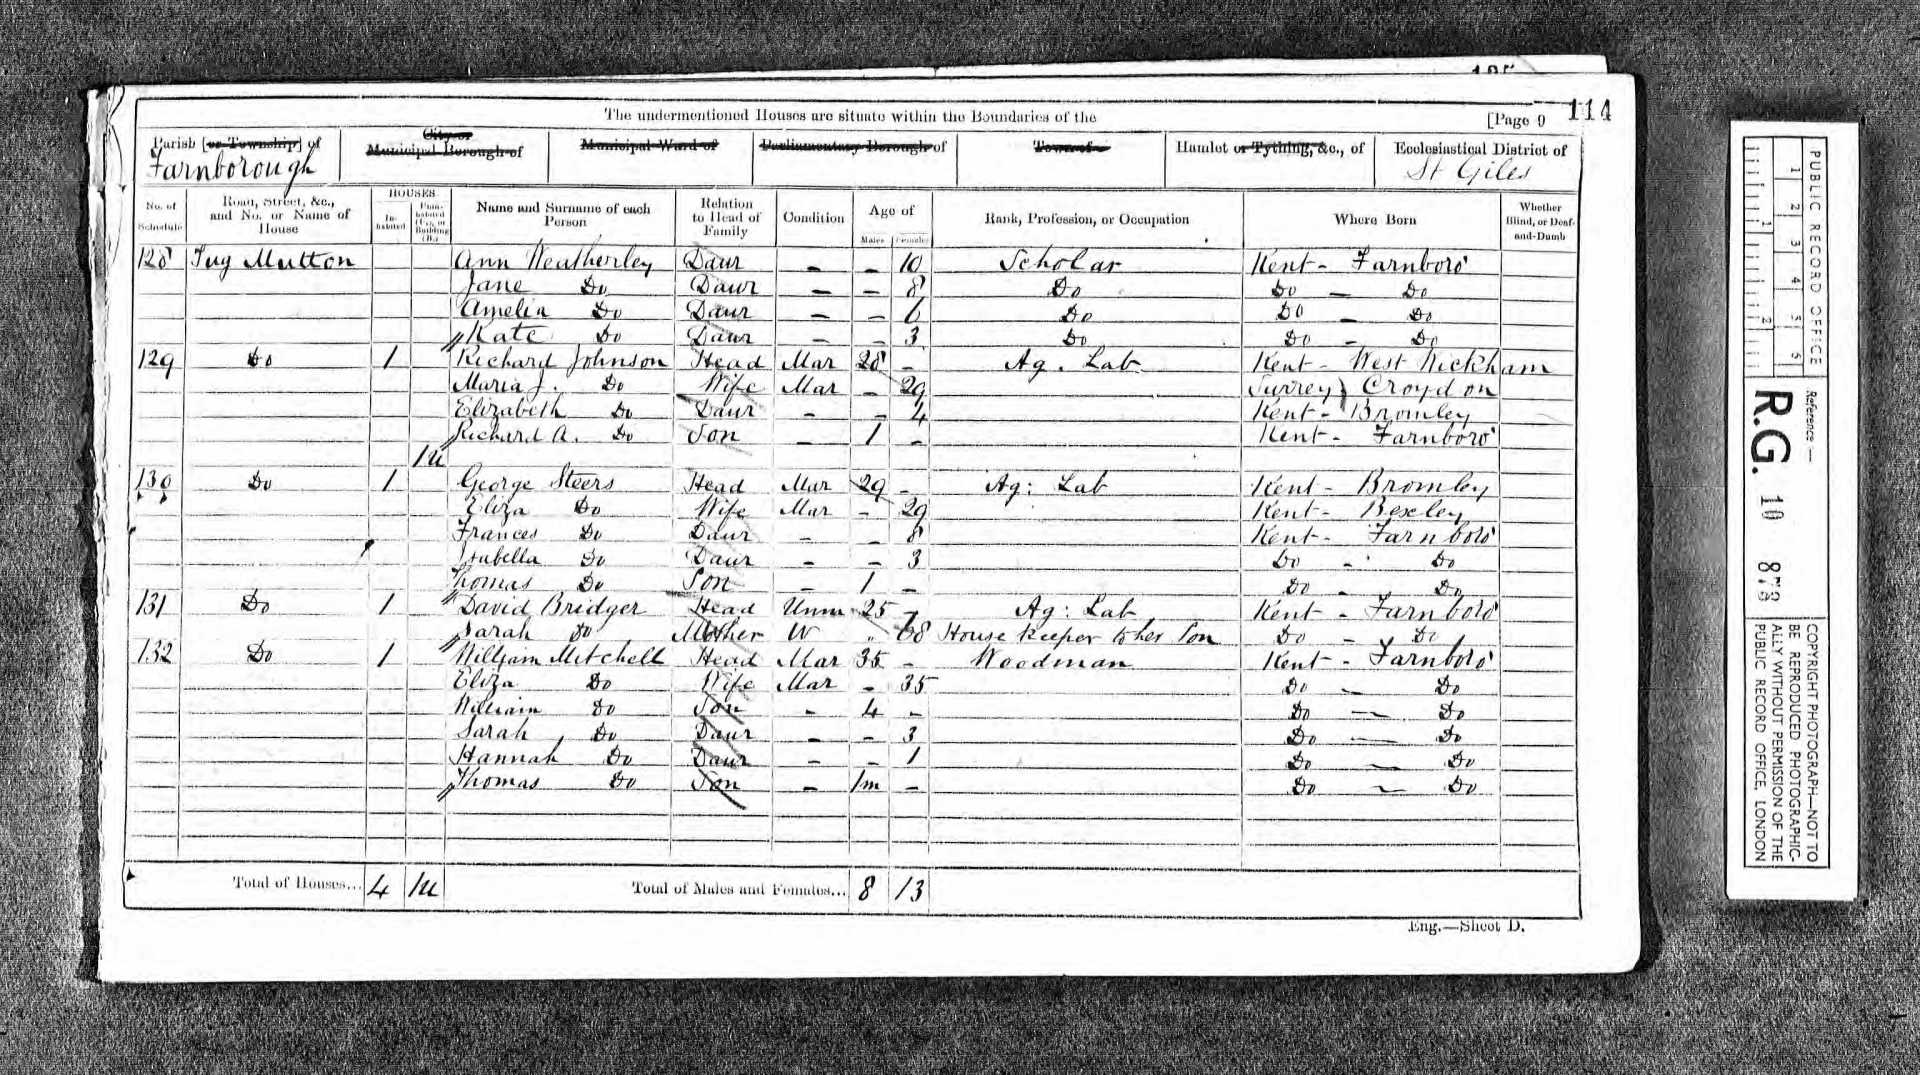 The undermentioned Houses are situate within the Boundaries of the
[Page 9
114
Parish [or Township] of
Farnborough
City or
Municipal Borough of
Municipal Ward of
Parliamentary Borough of
Town of
Hamlet or Tything, &c., of
Ecclesiastical District of
St Giles
No. of Schedule
Road, Street, &c., and No. or Name of House
HOUSES
In-habited
Unin-habited (U.), or Building (B.)
Name and Surname of each Person
Relation to Head of Family
Condition
Age of
Males
Females
Rank, Profession, or Occupation
Where Born
Whether Blind, or Deaf-and-Dumb
128 Tug Mutton Ann Weatherley Daur - - 10 Scholar Kent - Farnboro'
Jane Do Daur - - 8 Do Do - Do
Amelia Do Daur - - 6 Do Do - Do
Kate Do Daur - - 3 Do Do - Do
129 Do 1 Richard Johnson Head Mar 28 - Ag. Lab Kent - West Wickham
Maria J. Do Wife Mar - 29 Surrey Croydon
Elizabeth Do Daur - - 4 Kent - Bromley
Richard A. Do Son - 1 - Kent - Farnboro'
1U
130 Do 1 George Steers Head Mar 29 - Ag: Lab Kent - Bromley
Eliza Do Wife Mar - 29 Kent - Bexley
Frances Do Daur - - 8 Kent - Farnboro'
Isabella Do Daur - - 3 Do - Do
Thomas Do Son - 1 - Do - Do
131 Do 1 David Bridger Head Unm 25 - Ag: Lab Kent - Farnboro'
Sarah Do Mother W " 68 House keeper to her Son Do - Do
132 Do 1 William Mitchell Head Mar 35 - Woodman Kent - Farnboro'
Eliza Do Wife Mar - 35 Do - Do
William Do Son - 4 - Do - Do
Sarah Do Daur - - 3 Do - Do
Hannah Do Daur - - 1 Do - Do
Thomas Do Son - 1m - Do - Do
Total of Houses... 4 1U Total of Males and Females... 8 13
Eng.—Sheet D.
PUBLIC RECORD OFFICE
1 2 3 4 5 6
1 2
Reference:—
R.G. 10 873
COPYRIGHT PHOTOGRAPH—NOT TO
BE REPRODUCED PHOTOGRAPHIC-
ALLY WITHOUT PERMISSION OF THE
PUBLIC RECORD OFFICE, LONDON